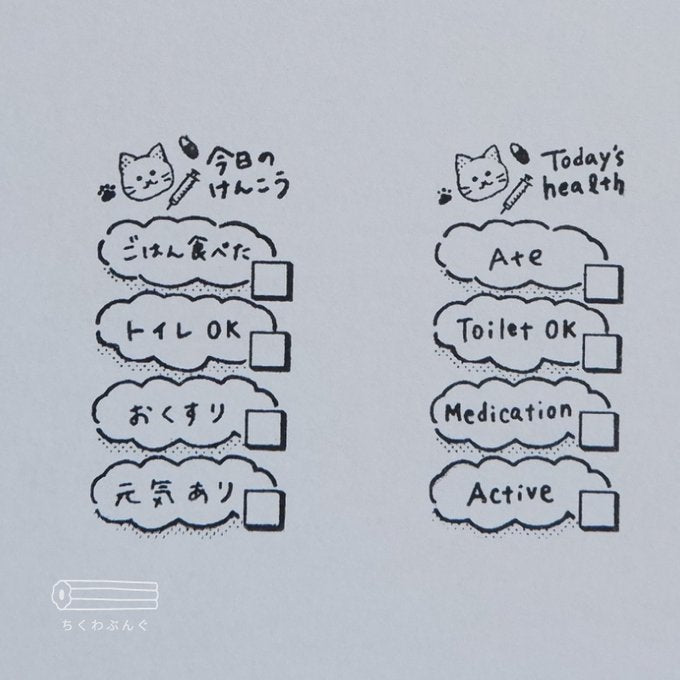 今日の
けんこう
ごはん食べた
トイレ OK
おくすり
元気あり
Today's
health
Ate
Toilet OK
Medication
Active
ちくわぶんぐ